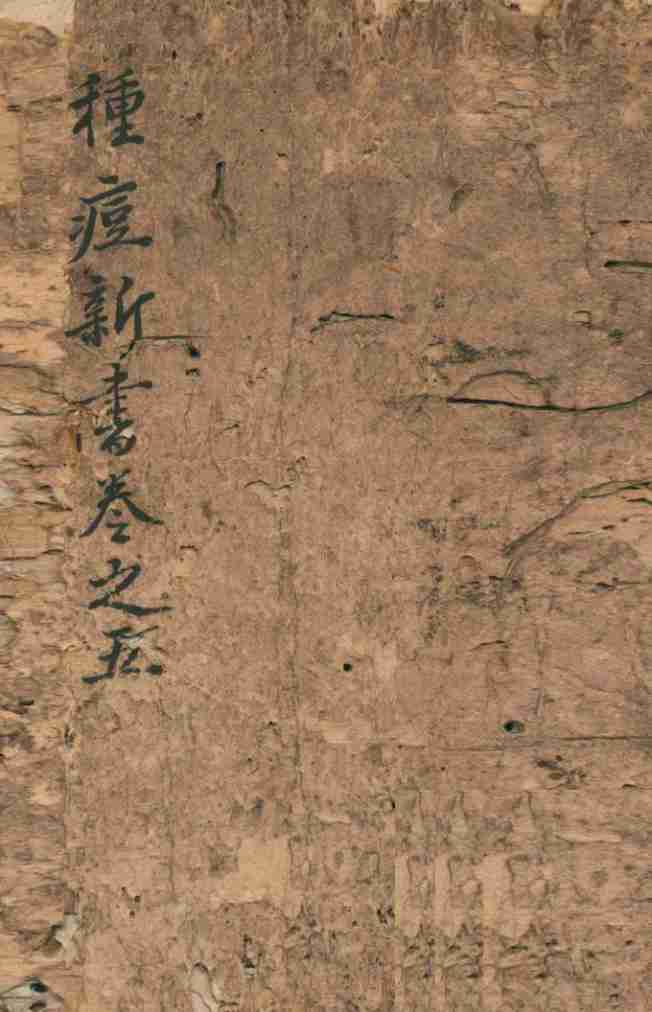 種痘新書卷之五